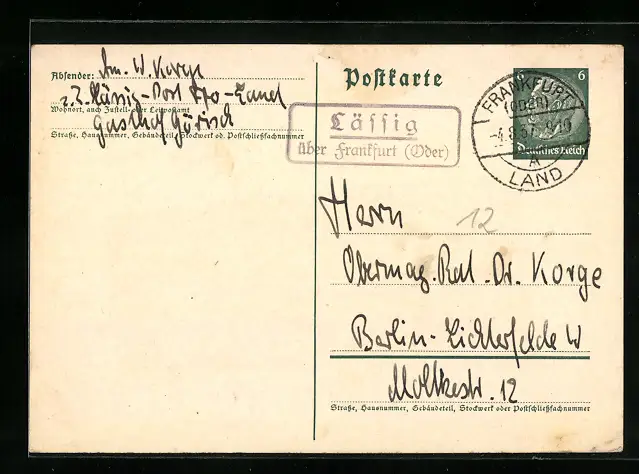 Absender: Am. W. Korge
z. Z. Lässig-Post Ffo-Land
Wohnort, auch Zustell- oder Leitpostamt
Gasthof Görisch
Straße, Hausnummer, Gebäudeteil, Stockwerk od. Postschließfachnummer
Postkarte
Lässig
über Frankfurt (Oder)
6
Deutsches Reich
FRANKFURT
(ODER)
-4.8.37
A
LAND
Herrn
12
Obermag. Rat. Dr. Korge
Berlin-Lichterfelde W
Moltkestr. 12
Straße, Hausnummer, Gebäudeteil, Stockwerk oder Postschließfachnummer